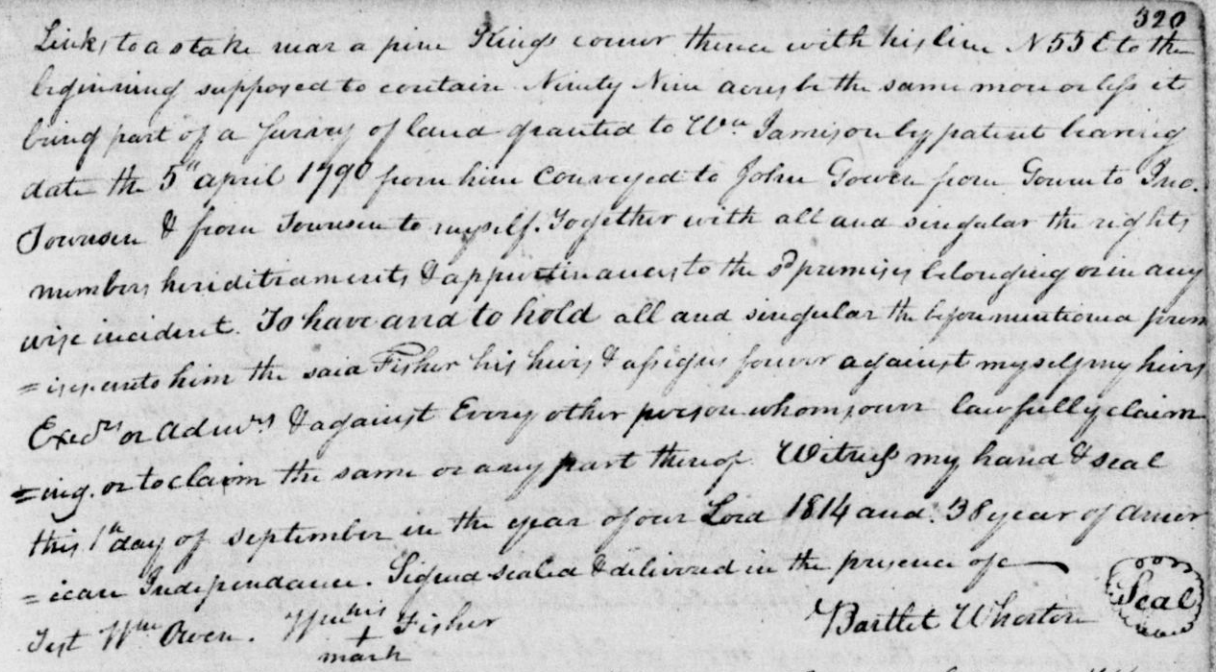 320
Links to a stake near a pine Kings corner thence with his line N 55 E to the
beginning supposed to contain Ninety Nine acres be the same more or less it
being part of a Survey of land granted to Wm Jamison by patent bearing
date the 5th april 1790 from him Conveyed to John Gowen from Gowen to Jno.
Townsen & from Townsen to myself. Together with all and singular the rights
members herediraments & appurtinances to the sd premises belonging or in any
wise incident. To have and to hold all and singular the before mentioned prem
=ises unto him the said Fisher his heirs & assigns forever against myself my heirs
Execrs or Admrs & against Every other person whomsoever lawfully claim
=ing. or to claim the same or any part thereof. Witness my hand & seal
this 1st day of september in the year of our Lord 1814 and. 38 year of Amer
=ican Independance. Signed sealed & delivered in the presence of
Test Wm Owen. Wm his + mark Fisher Bartlet Whorton Seal